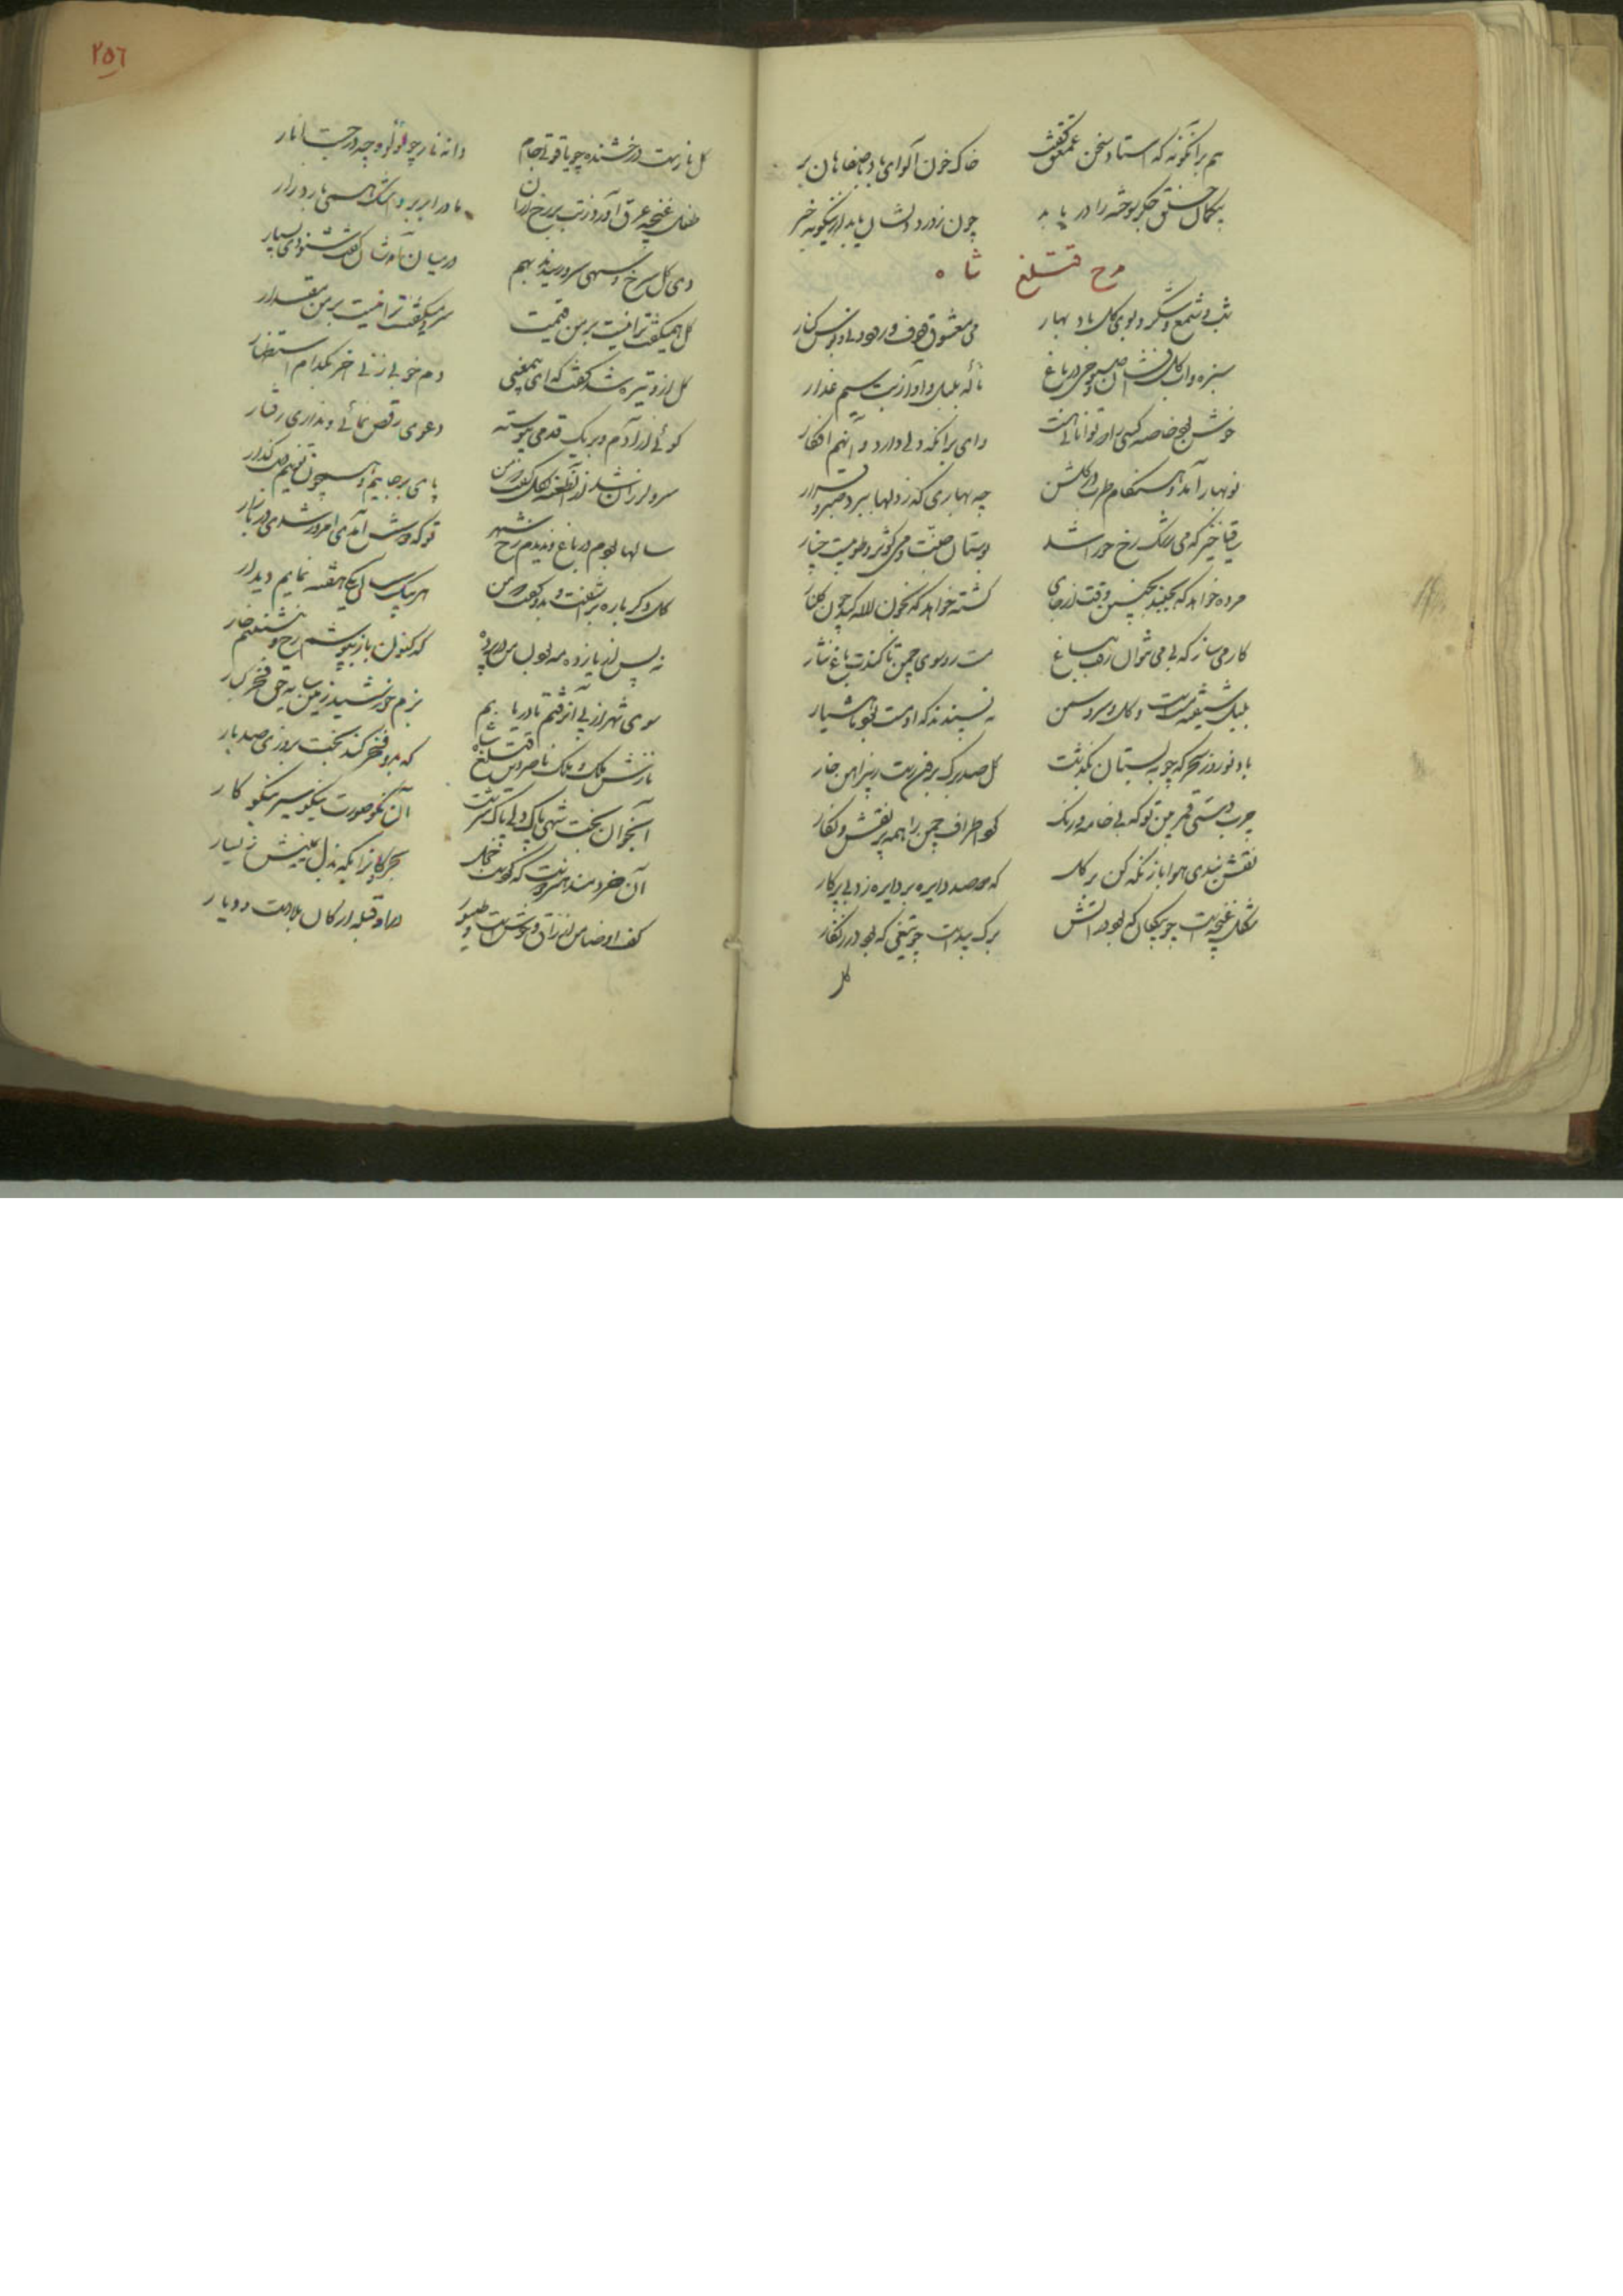 هم برانگونه که استاد سخن عمعق گفت خاک خون آلود ای باد باصفاهان بر
بکمال جگر سوخته را دریابد چون ز درد دلشان یابد ازینگونه خبر
مدح قتلغ شاه
شب و شمع و شکر و بوی گل و باد بهار می و معشوق و دف و رود و نی و بوس و کنار
سبزه و آب گل افشان صبوحی در باغ ناله بلبل و آواز بت سیم عذار
خوش بود خاصه کسی را که توانائی هست وای بر آنکه دلی دارد و آنهم افکار
نوبهار آمد و هنگام طرب در گلشن چه بهاری که ز دلها ببرد صبر و قرار
ساقیا خیز که می رشک رخ حورا شد بوستان جنت و می کوثر و طوبیست چنار
مرده خواهد که بجنبد بچنین وقت از جای کشته خواهد که بخون لاله کند چون گلنار
کار می ساز که بی می نتوان رفت بباغ مست رو سوی چمن تا کندت باغ نثار
بلبل شیفته مست است و گل و سرو و سمن نپسندند که او مست بود ما هشیار
باد نوروز سحرگه چو به بستان بگذشت گل صدبرگ برون رست ز پیرامن خار
چرب دستی فلک بین تو که بی خامه و رنگ کرد اطراف چمن را همه پر نقش و نگار
نقش بندی هوا بازنگه کن بر گل که دو صد دایره بر دایره زد بی پرگار
شکل غنچه است چو پیکان که بود بر آتش برگ بید است چو تیغی که بود در زنگار
گل
٢٥٦
گل نارست درخشنده چو یاقوتی جام دانه نار چو لؤلؤ و چه درجست انار
طفل غنچه عرق آورد ز تب بر رخ از آن مادر ابر برو اشک همی بارد زار
دی گل سرخ و سهی سرو رسیدند بهم در میان آمدشان گفت و شنودی بسیار
گل همیگفت ترا نیست بر من قیمت سرو میگفت ترا نیست بر من مقدار
گل ازو تیره شد و گفت که ای بیمعنی دم خوبی زنی آخر بکدام استظهار
گوئی آزادم و بر یک قدمی پیوسته دعوی رقص نمائی و نداری رفتار
سرو لرزان شد از آن طعنه بگل گفت که من پای برجایم و همچون تو نیم دست گذار
سالها بودم در باغ و ندیدم رخ شهر تو که دوش آمدی امروز شدی در بازار
گل دگر باره برآشفت و بدو گفت که من هر بیک سال یکی هفته نمایم دیدار
نه پس از یازده مه بودن من در پرده که کنون باز بپوشم رخ و بنشینم خوار
سوی شهر از پی آن رفتم تا دریابم بزم خورشید زمین سایه حق فخر کبار
نازش ملک و ملک ناصر دین قتلغ شاه که بدو فخر کند تخت بروزی صد بار
آن جوان بخت شهی پاک دلی پاک سرشت آن نکو صورت نیکو سیر نیکو کار
آن خردمند هنرور که گویند خجل بحر و کانرا بگه بذل یمینش ز یسار
کف او ضامن ارزاق وحوش است و طیور